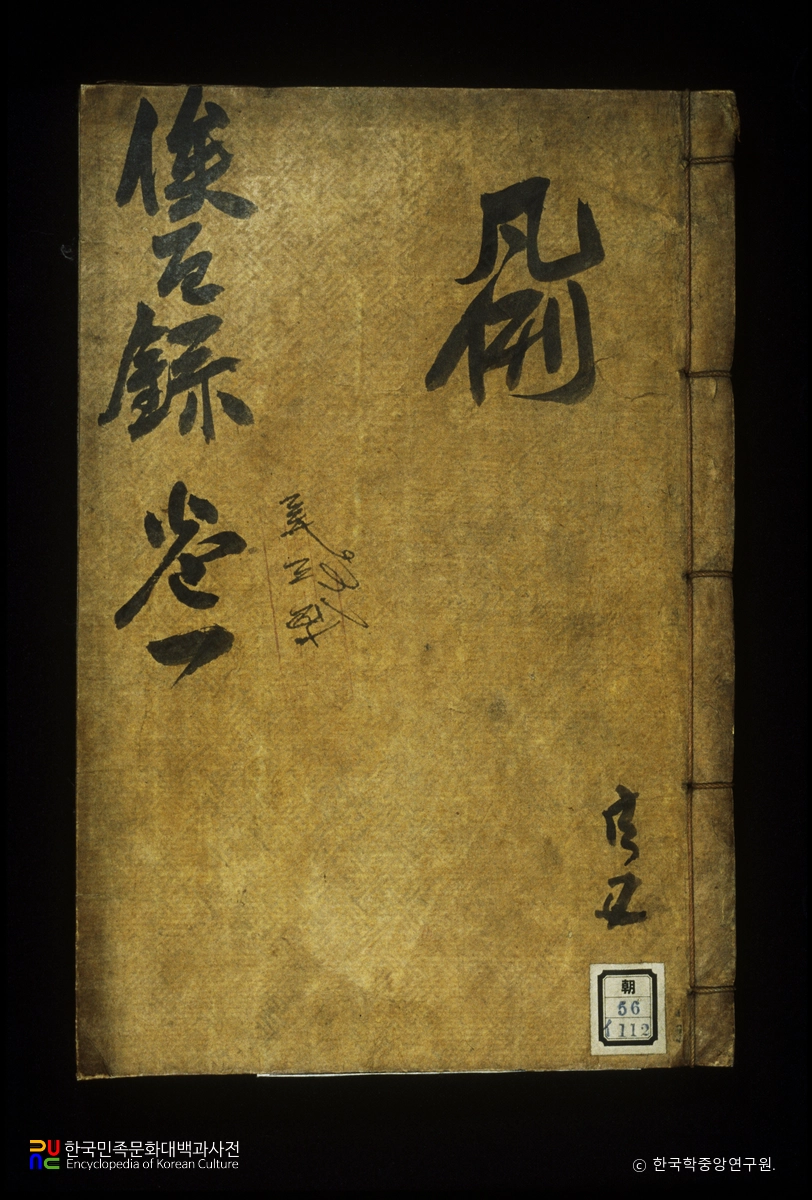 凡例
俟百錄 卷一
朝
56
112
한국민족문화대백과사전
Encyclopedia of Korean Culture
ⓒ 한국학중앙연구원.